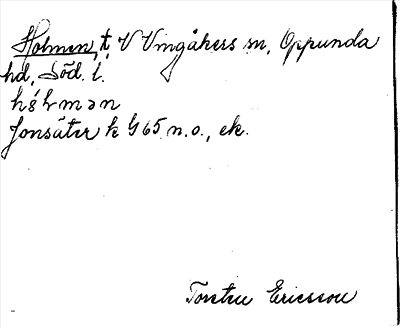 Holmen, t, V Vingåkers sn, Oppunda
hd, Söd. l.
Jonsäter k G 65 n.o., ek.
Torsten Ericsson